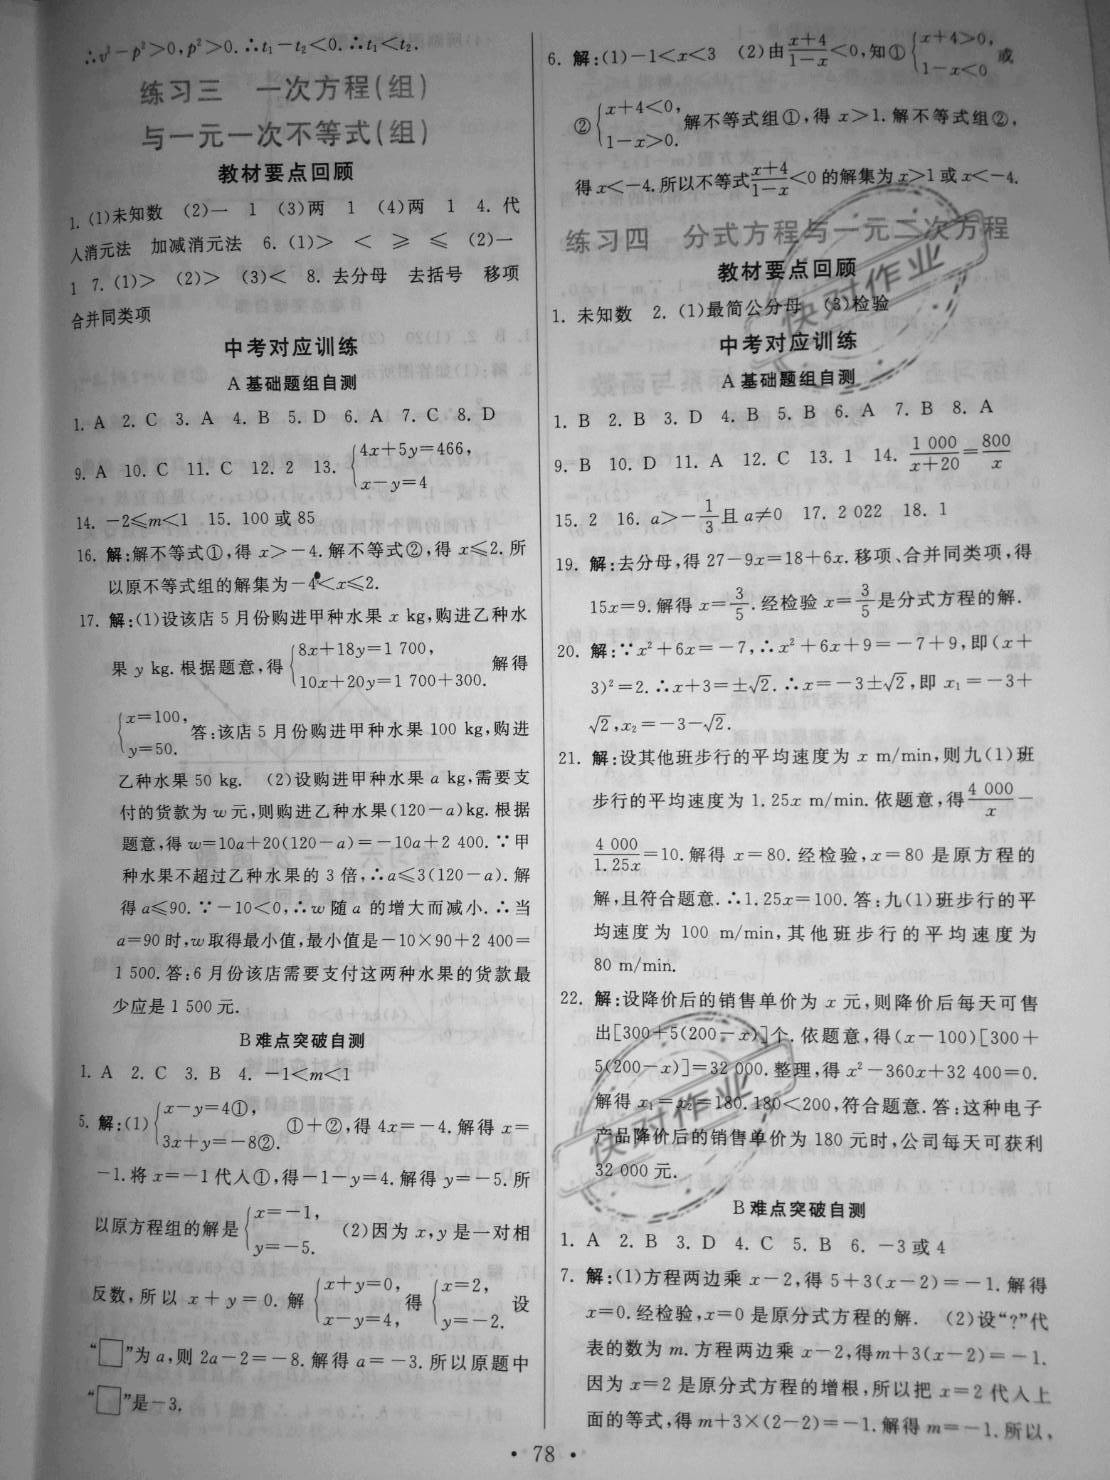 ∴v²－p²＞0,p²＞0.∴t₁－t₂＜0.∴t₁＜t₂.
练习三　一次方程(组)
与一元一次不等式(组)
教材要点回顾
1. (1)未知数　(2)一　1　(3)两　1　(4)两　1　4. 代
入消元法　加减消元法　6. (1)＞　＜　≥　≤　(2)一
1　7. (1)＞　(2)＞　(3)＜　8. 去分母　去括号　移项
合并同类项
中考对应训练
A 基础题组自测
1. A　2. C　3. A　4. B　5. D　6. A　7. C　8. D
9. A　10. C　11. C　12. 2　13. {4x＋5y＝466,
x－y＝4
14. －2≤m＜1　15. 100 或 85
16. 解:解不等式①,得 x＞－4. 解不等式②,得 x≤2. 所
以原不等式组的解集为－4＜x≤2.
17. 解:(1)设该店 5 月份购进甲种水果 x kg,购进乙种水
果 y kg. 根据题意,得{8x＋18y＝1 700,
10x＋20y＝1 700＋300. 解得
{x＝100,
y＝50. 答:该店 5 月份购进甲种水果 100 kg,购进
乙种水果 50 kg.　(2)设购进甲种水果 a kg,需要支
付的货款为 w 元,则购进乙种水果(120－a)kg. 根据
题意,得 w＝10a＋20(120－a)＝－10a＋2 400. ∵甲
种水果不超过乙种水果的 3 倍,∴a≤3(120－a). 解
得 a≤90. ∵－10＜0,∴w 随 a 的增大而减小. ∴当
a＝90 时,w 取得最小值,最小值是－10×90＋2 400＝
1 500. 答:6 月份该店需要支付这两种水果的货款最
少应是 1 500 元.
B 难点突破自测
1. A　2. C　3. B　4. －1＜m＜1
5. 解:(1){x－y＝4①,
3x＋y＝－8②. ①＋②,得 4x＝－4. 解得 x＝
－1. 将 x＝－1 代入①,得－1－y＝4. 解得 y＝－5. 所
以原方程组的解是{x＝－1,
y＝－5. (2)因为 x,y 是一对相
反数,所以 x＋y＝0. 解{x＋y＝0,
x－y＝4, 得{x＝2,
y＝－2. 设
“□”为 a,则 2a－2＝－8. 解得 a＝－3. 所以原题中
“□”是－3.
6. 解:(1)－1＜x＜3　(2)由(x＋4)/(1－x)＜0,知①{x＋4＞0,
1－x＜0 或
②{x＋4＜0,
1－x＞0. 解不等式组①,得 x＞1. 解不等式组②,
得 x＜－4. 所以不等式(x＋4)/(1－x)＜0 的解集为 x＞1 或 x＜－4.
练习四　分式方程与一元二次方程
教材要点回顾
1. 未知数　2. (1)最简公分母　(3)检验
中考对应训练
A 基础题组自测
1. B　2. B　3. D　4. B　5. B　6. A　7. B　8. A
9. B　10. D　11. A　12. C　13. 1　14. 1 000/(x＋20)＝800/x
15. 2　16. a＞－1/3且 a≠0　17. 2 022　18. 1
19. 解:去分母,得 27－9x＝18＋6x. 移项、合并同类项,得
15x＝9. 解得 x＝3/5. 经检验 x＝3/5是分式方程的解.
20. 解:∵x²＋6x＝－7,∴x²＋6x＋9＝－7＋9,即(x＋
3)²＝2. ∴x＋3＝±√2. ∴x＝－3±√2,即 x₁＝－3＋
√2,x₂＝－3－√2.
21. 解:设其他班步行的平均速度为 x m/min,则九(1)班
步行的平均速度为 1. 25x m/min. 依题意,得4 000/x－
4 000/1. 25x＝10. 解得 x＝80. 经检验,x＝80 是原方程的
解,且符合题意. ∴1. 25x＝100. 答:九(1)班步行的平
均速度为 100 m/min,其他班步行的平均速度为
80 m/min.
22. 解:设降价后的销售单价为 x 元,则降价后每天可售
出[300＋5(200－x)]个. 依题意,得(x－100)[300＋
5(200－x)]＝32 000. 整理,得 x²－360x＋32 400＝0.
解得 x₁＝x₂＝180. 180＜200,符合题意. 答:这种电子
产品降价后的销售单价为 180 元时,公司每天可获利
32 000 元.
B 难点突破自测
1. A　2. B　3. D　4. C　5. B　6. －3 或 4
7. 解:(1)方程两边乘 x－2,得 5＋3(x－2)＝－1. 解得
x＝0. 经检验,x＝0 是原分式方程的解.　(2)设“?”代
表的数为 m. 方程两边乘 x－2,得m＋3(x－2)＝－1.
因为 x＝2 是原分式方程的增根,所以把 x＝2 代入上
面的等式,得 m＋3×(2－2)＝－1. 解得 m＝－1. 所以,
• 78 •
快对作业
快对作业